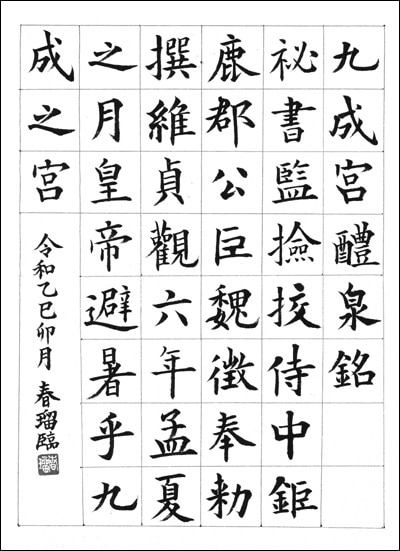 九成宮醴泉銘
祕書監撿挍侍中鉅
鹿郡公臣魏徴奉勑
撰維貞觀六年孟夏
之月皇帝避暑乎九
成之宮
令和乙巳卯月 春瑠臨